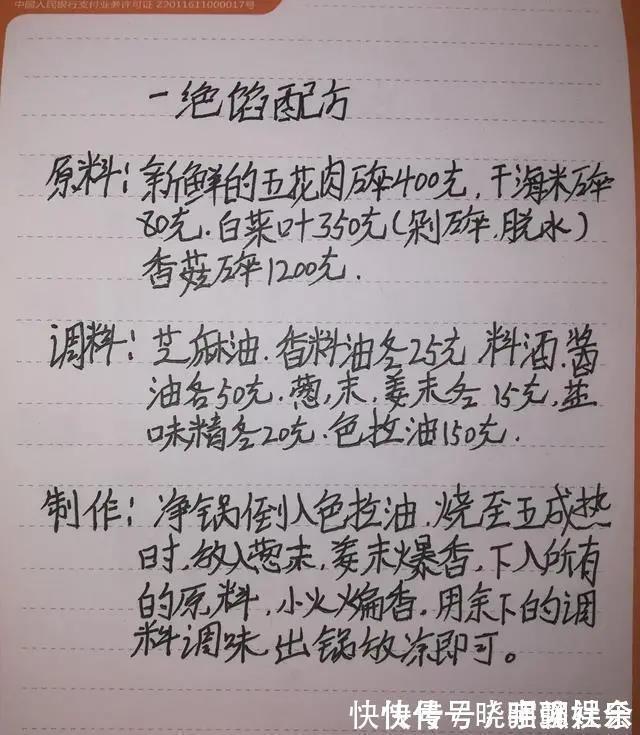 中国人民银行支付业务许可证 Z2011611000017号
一绝馅配方
原料:新鲜的五花肉碎400克,干海米碎
80克.白菜叶350克(剁碎.脱水)
香菇碎1200克.
调料:芝麻油.香料油各25克 料酒.酱
油各50克.葱,末,姜末各15克,盐
味精各20克.色拉油150克.
制作:净锅倒入色拉油.烧至五成热
时,放入葱末,姜末爆香,下入所有
的原料,小火煸香.用余下的调
料调味,出锅放凉即可。
快传号